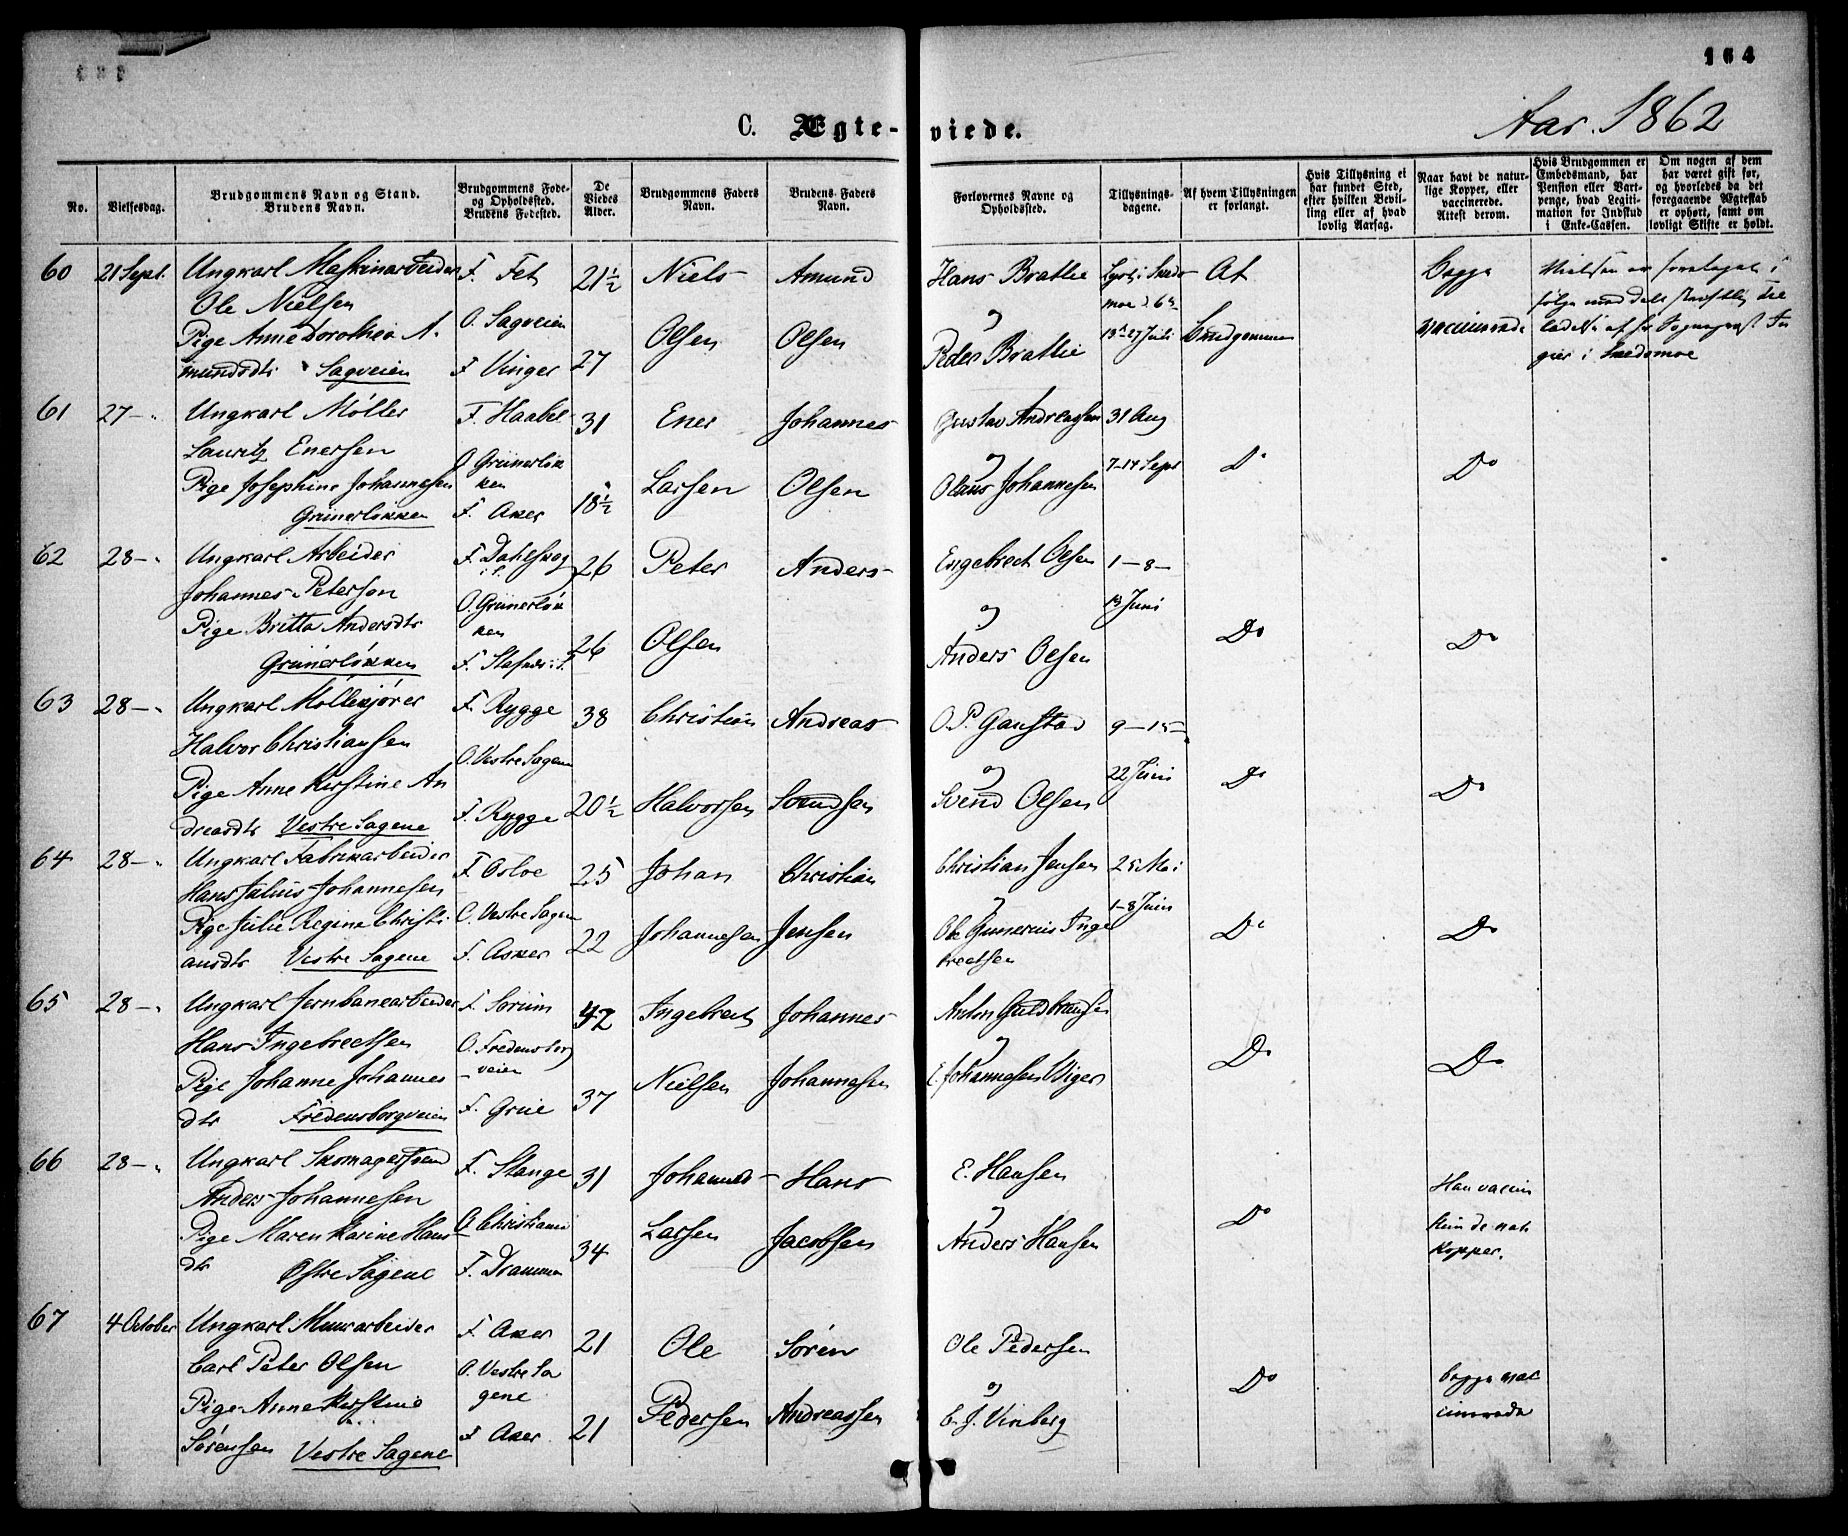 164
C. Ægte-viede.
Aar 1862
No.
Vielsesdag.
Brudgommens Navn og Stand.
Brudens Navn.
Brudgommens Føde-
og Opholdssted.
Brudens Fødested.
De
Viedes
Alder.
Brudgommens Faders
Navn.
Brudens Faders
Navn.
Forlovernes Navne og
Opholdssted.
Tillysnings-
dagene.
Af hvem Tillysningen
er forlangt.
Hvis Tillysning ei
har fundet Sted,
efter hvilken Bevil-
ling eller af hvad
lovlig Aarsag.
Naar havt de natur-
lige Kopper, eller
vaccinerede.
Attest derom.
Hvis Brudgommen er
Embedsmand, har
Pension eller Vart-
penge, hvad Legiti-
mation for Indskud
i Enke-Cassen.
Om nogen af dem
har været gift før,
og hvorledes da det
foregaaende Ægteskab
er ophørt, samt om
lovligt Skifte er holdt.
60 21 Sept. Ungkarl Maskinarbeider F. Fet 21½ Niels Amund Hans Brattie Af Begge
Ole Nielsen O. Sagveien og
Pige Anne Dorothea A- 13-27 Juli Brudgommen vaccinerede
mundsdtr Sagveien F Vinger 27 Olsen Olsen Peder Brattie
i Skedsmoe
61 27 - Ungkarl Møller F. Haabøl 31 Ener Johannes Gustav Andreasen 31 Aug
Lauritz Enersen O Grünerløk og 7-14 Sept Do Do
Pige Josephine Johannesen ken 18½ Larsen Olsen Olaus Johannesen
Grünerløkken F. Aker
62 28 - Ungkarl Arbeider F. Dahlskog 26 Peter Anders Engebrect Olsen 1-8-
Johannes Peterson O. Grünerløk og 13 Juni
Pige Britta Andersdtr ken 26 Olsen Do Do
Grünerløkken F. Anders Olsen
63 28 - Ungkarl Møllekjører F. Rygge 38 Christian Andreas O. P. Ganstad 9-15-
Halvor Christiansen O. Vestre Sagene og 22 Juni Do Do
Pige Anne Kirstine An 20½ Halvorsen Svendsen Svend Olsen
dreasdtr Vestre Sagene F. Rygge
64 28 - Ungkarl Fabrikarbeider F. Osloe 25 Johan Christian Christian Jensen 25 Mai
Hans Julius Johannesen O. Vestre Sagene og 1-8 Juni
Pige Julie Regine Christi 22 Johannesen Jensen Ole Gunerius Inge Do Do
ansdtr Vestre Sagene F. Asker brectsen
65 28 - Ungkarl Jernbanearbeider F. Sørum 42 Ingebrect Johannes Anton Guldbransen
Hans Ingebrectsen O. Fredensborg og Do Do
Pige Johanne Johannes - veien Nielsen Johannesen E. Johannesen
dtr Fredensborgveien F. Grue 37
66 28 - Ungkarl Skomagersvend F. Stange 31 Johannes Hans E. Hansen Han vaccin
Anders Johannesen O. Christiania og Do Hun de nat
Pige Maren Karine Hans 34 Larsen Jacobsen Anders Hansen Kopper.
dtr Østre Sagene F. Drammen
67 4 October Ungkarl Murarbeider F. Aker 21 Ole Søren Ole Pedersen
Carl Peter Olsen O. Vestre Sa og Do begge vac
Pige Anne Kirstine gene Pedersen Andreassen C. J. Vinberg cinerede
Sørensen Vestre Sagene F Aker 21